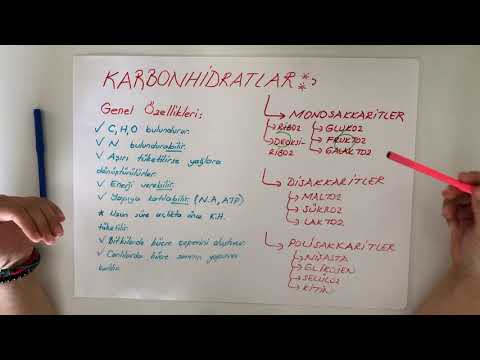 KARBONHİDRATLAR **,
Genel Özellikleri:
✓ C,H,O bulundurur.
✓ N bulundurabilir.
✓ Aşırı tüketilirse yağlara
dönüştürülürler.
✓ Enerji verebilir.
✓ Yapıya katılabilir. (N.A, ATP)
* Uzun süre açlıkta önce K.H.
tüketilir.
✓ Bitkilerde hücre çeperini oluşturur.
✓ Canlılarda hücre zarının yapısına
katılır.
MONOSAKKARİTLER
RİBOZ
DEOKSİ-
RİBOZ
GLUKOZ
FRUKTOZ
GALAKTOZ
DİSAKKARİTLER
MALTOZ
SÜKROZ
LAKTOZ
POLİSAKKARİTLER
NİŞASTA
GLİKOJEN
SELÜLOZ
KİTİN